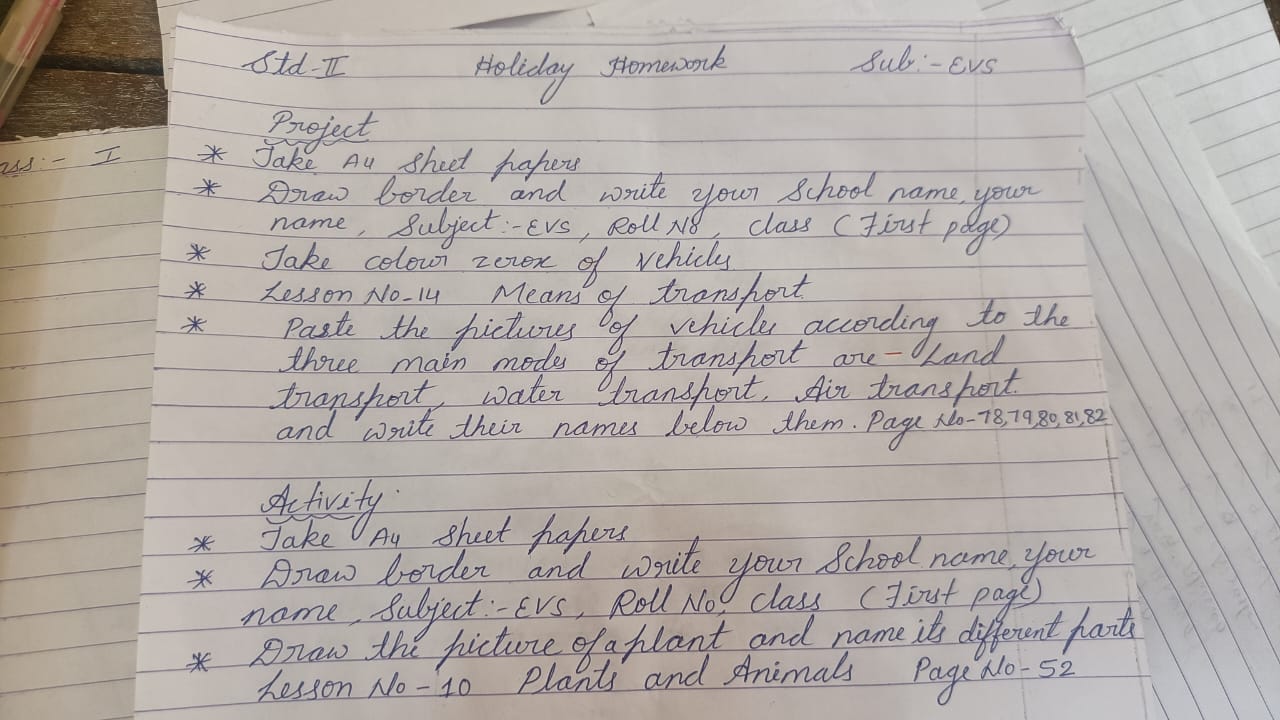 Std-II Holiday Homework Sub:- EVS
Project
* Take A4 Sheet papers
* Draw border and write your School name, your
name, Subject:-EVS, Roll No, class (First page)
* Take colour zerox of vehicles
* Lesson No-14 Means of transport.
* Paste the pictures of vehicles according to the
three main modes of transport are - Land
transport, water transport, Air transport.
and write their names below them. Page No-78,79,80,81,82
Activity
* Take A4 Sheet papers
* Draw border and write your School name, your
name, Subject:-EVS, Roll No, class (First page)
* Draw the picture of a plant and name its different parts
Lesson No-10 Plants and Animals Page No-52
ass:- I